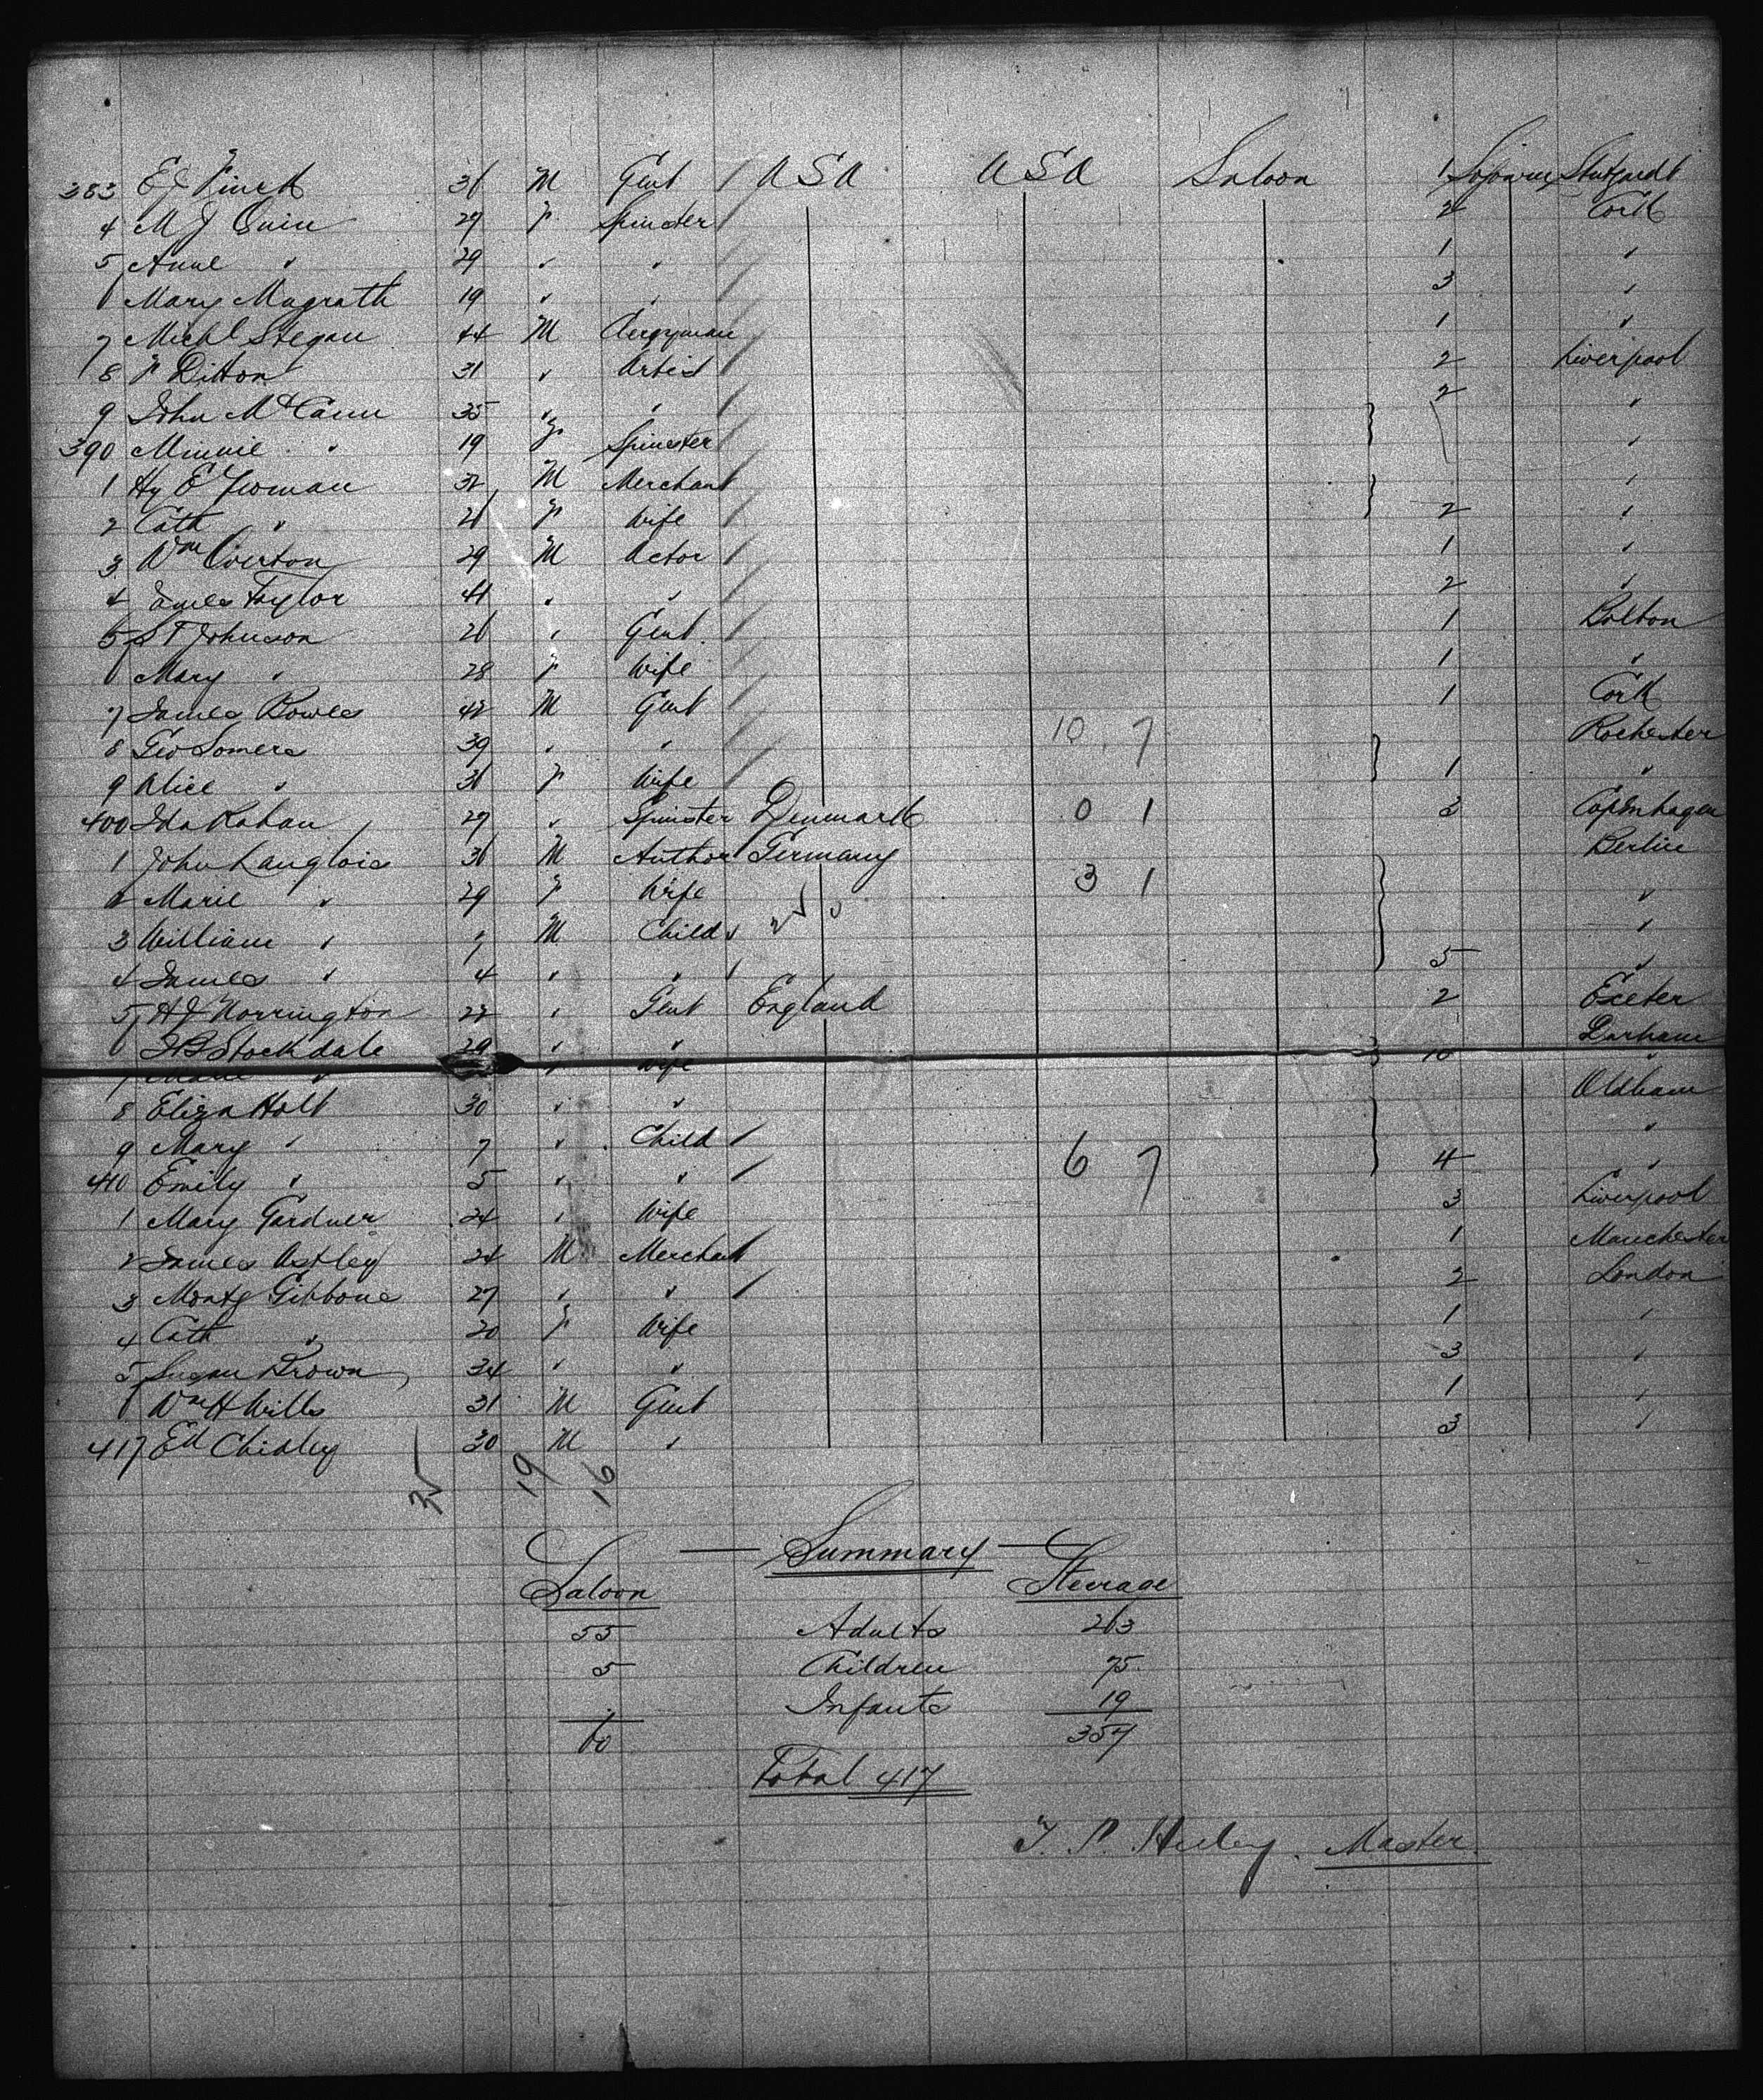 383 E J Finck 36 M Gent / U S A U S A Saloon 1 Sojourn Stutgardt
4 M J Quin 29 F Spinster / 2 Cork
5 Anne " 29 " " / 1 "
6 Mary Magrath 19 " " / 3 "
7 Michl Stegan 44 M Clergyman 1 "
8 F Ditton 31 " Artist / 2 Liverpool
9 John McCann 35 " " / 2 "
390 Minnie " 19 F Spinster / "
1 Hy E Yeoman 32 M Merchant "
2 Cath " 26 F Wife / 2 "
3 Wm Overton 29 M Actor / 1 "
4 James Taylor 41 " " 2 "
5 S T Johnson 26 " Gent / 1 Bolton
6 Mary " 28 F Wife 1 "
7 James Bowles 42 M Gent 1 Cork
8 Geo Somers 39 " " 10 7 Rochester
9 Alice " 36 F Wife 1 "
400 Ida Kahan 29 " Spinster Denmark 0 1 3 Copenhagen
1 John Langlois 36 M Author Germany Berlin
2 Marie " 29 F Wife 3 1 "
3 William " M Child "
4 James " 4 " " 5 "
5 H J Norrington 22 " Gent England 2 Exeter
6 J B Stockdale 29 " " Durham
7 Marie " " Wife 10 "
8 Eliza Holt 30 " " Oldham
9 Mary " 7 " Child / "
410 Emily " 5 " " / 6 7 4 "
1 Mary Gardner 24 " Wife 3 Liverpool
2 James Astley 24 M Merchant 1 Manchester
3 Monty Gibbons 27 " " / 2 London
4 Cath " 20 F Wife 1 "
5 Susan Brown 34 " " 3 "
6 Wm H Wills 31 M Gent 1 "
417 Ed Chidley 30 M " 3 "
35 19 16
Summary
Saloon Steerage
55 Adults 263
5 Children 75
. Infants 19
60 357
Total 417
T. P. Heeley. Master.